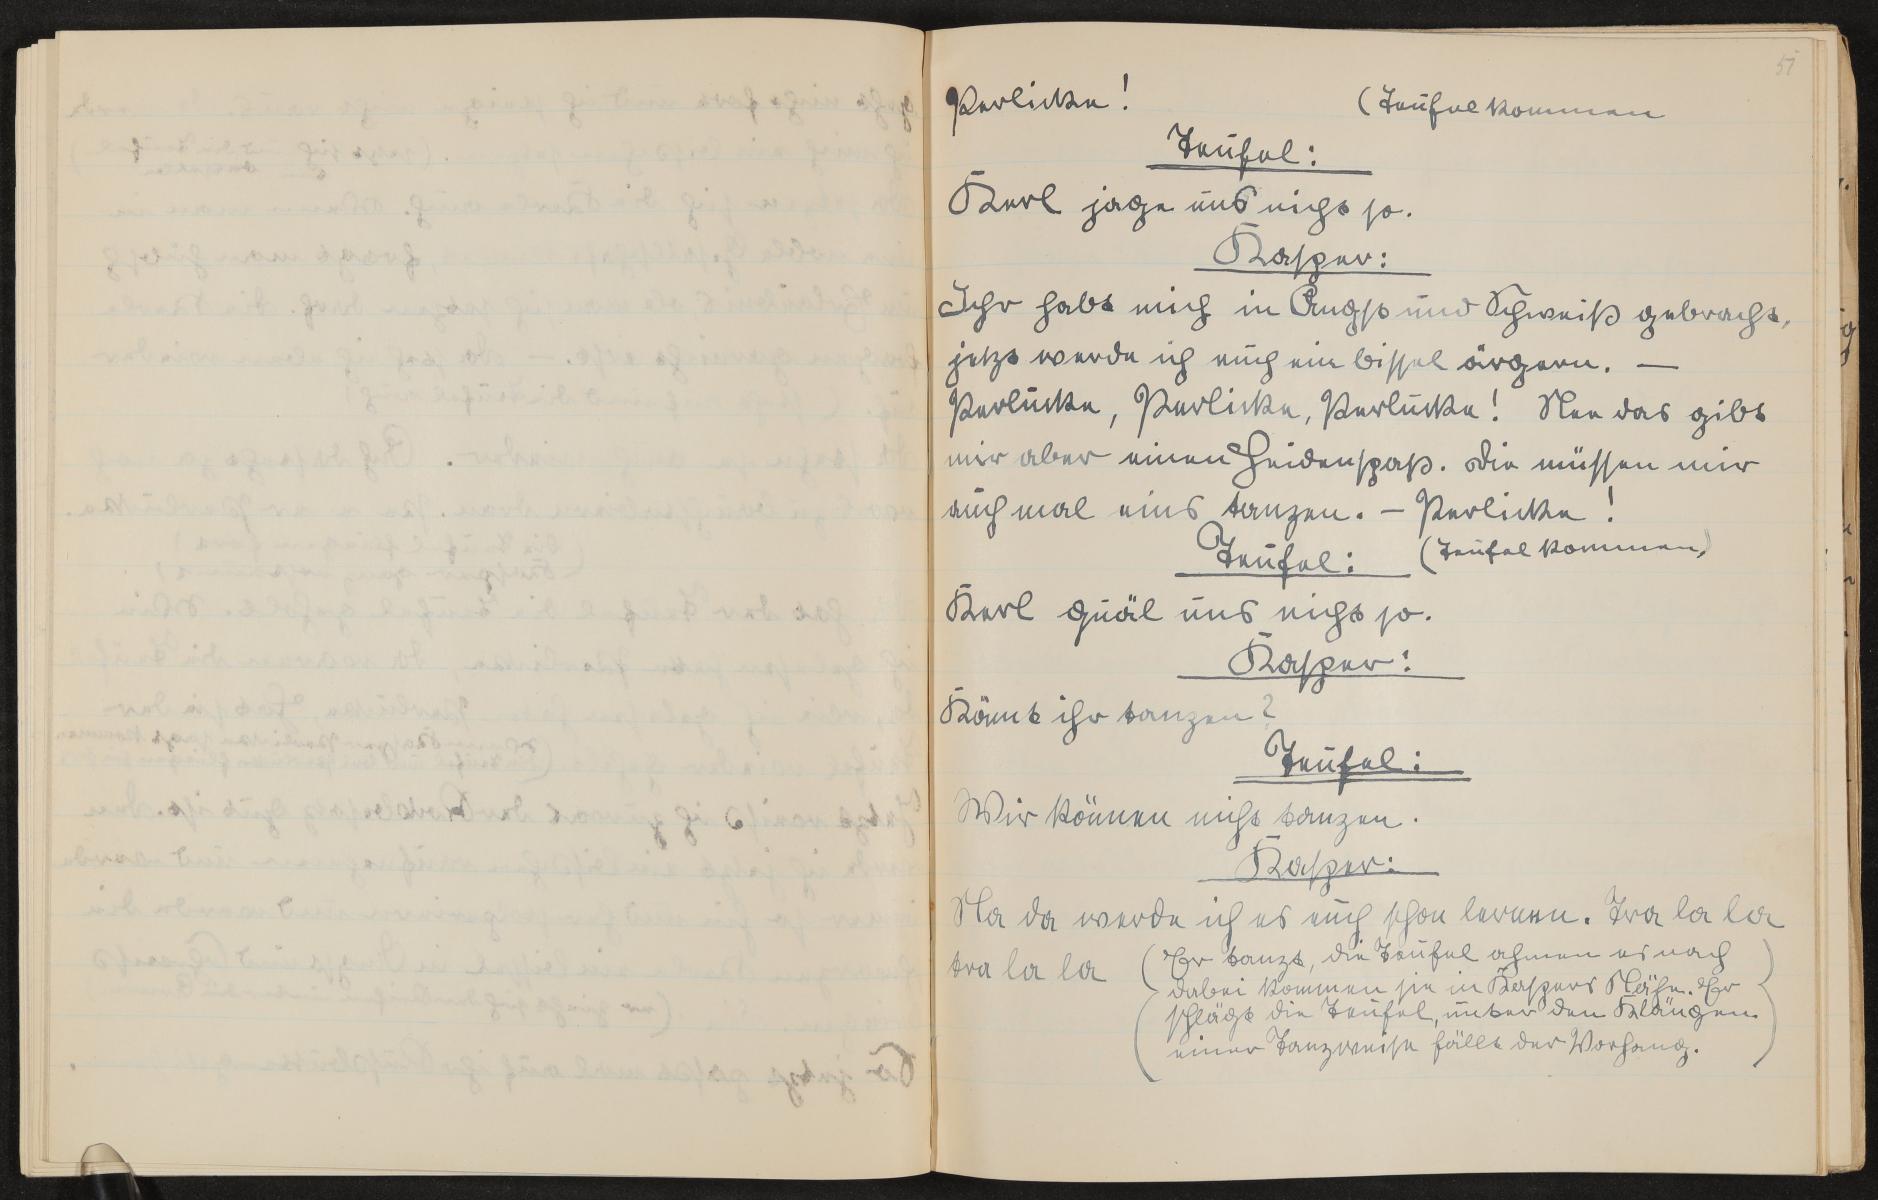 51
Perlicke! (Teufel kommen
Teufel:
Kerl jage uns nicht so.
Kasper:
Ihr habt mich in Angst und Schweiß gebracht,
jetzt werde ich euch ein bissel ärgern. —
Perlucke, Perlicke, Perlucke! Nee das gibt
mir aber einen Heidenspaß. Die müssen mir
auch mal eins tanzen. — Perlicke!
Teufel: (Teufel kommen)
Kerl quäl uns nicht so.
Kasper:
Könnt ihr tanzen?
Teufel:
Wir können nicht tanzen.
Kasper:
Na da werde ich es euch schon lernen. Tra la la
tra la la (Er tanzt, die Teufel ahmen es nach
dabei kommen sie in Kaspers Nähe. Er
schlägt die Teufel, unter den Klängen
einer Tanzweise fällt der Vorhang.)